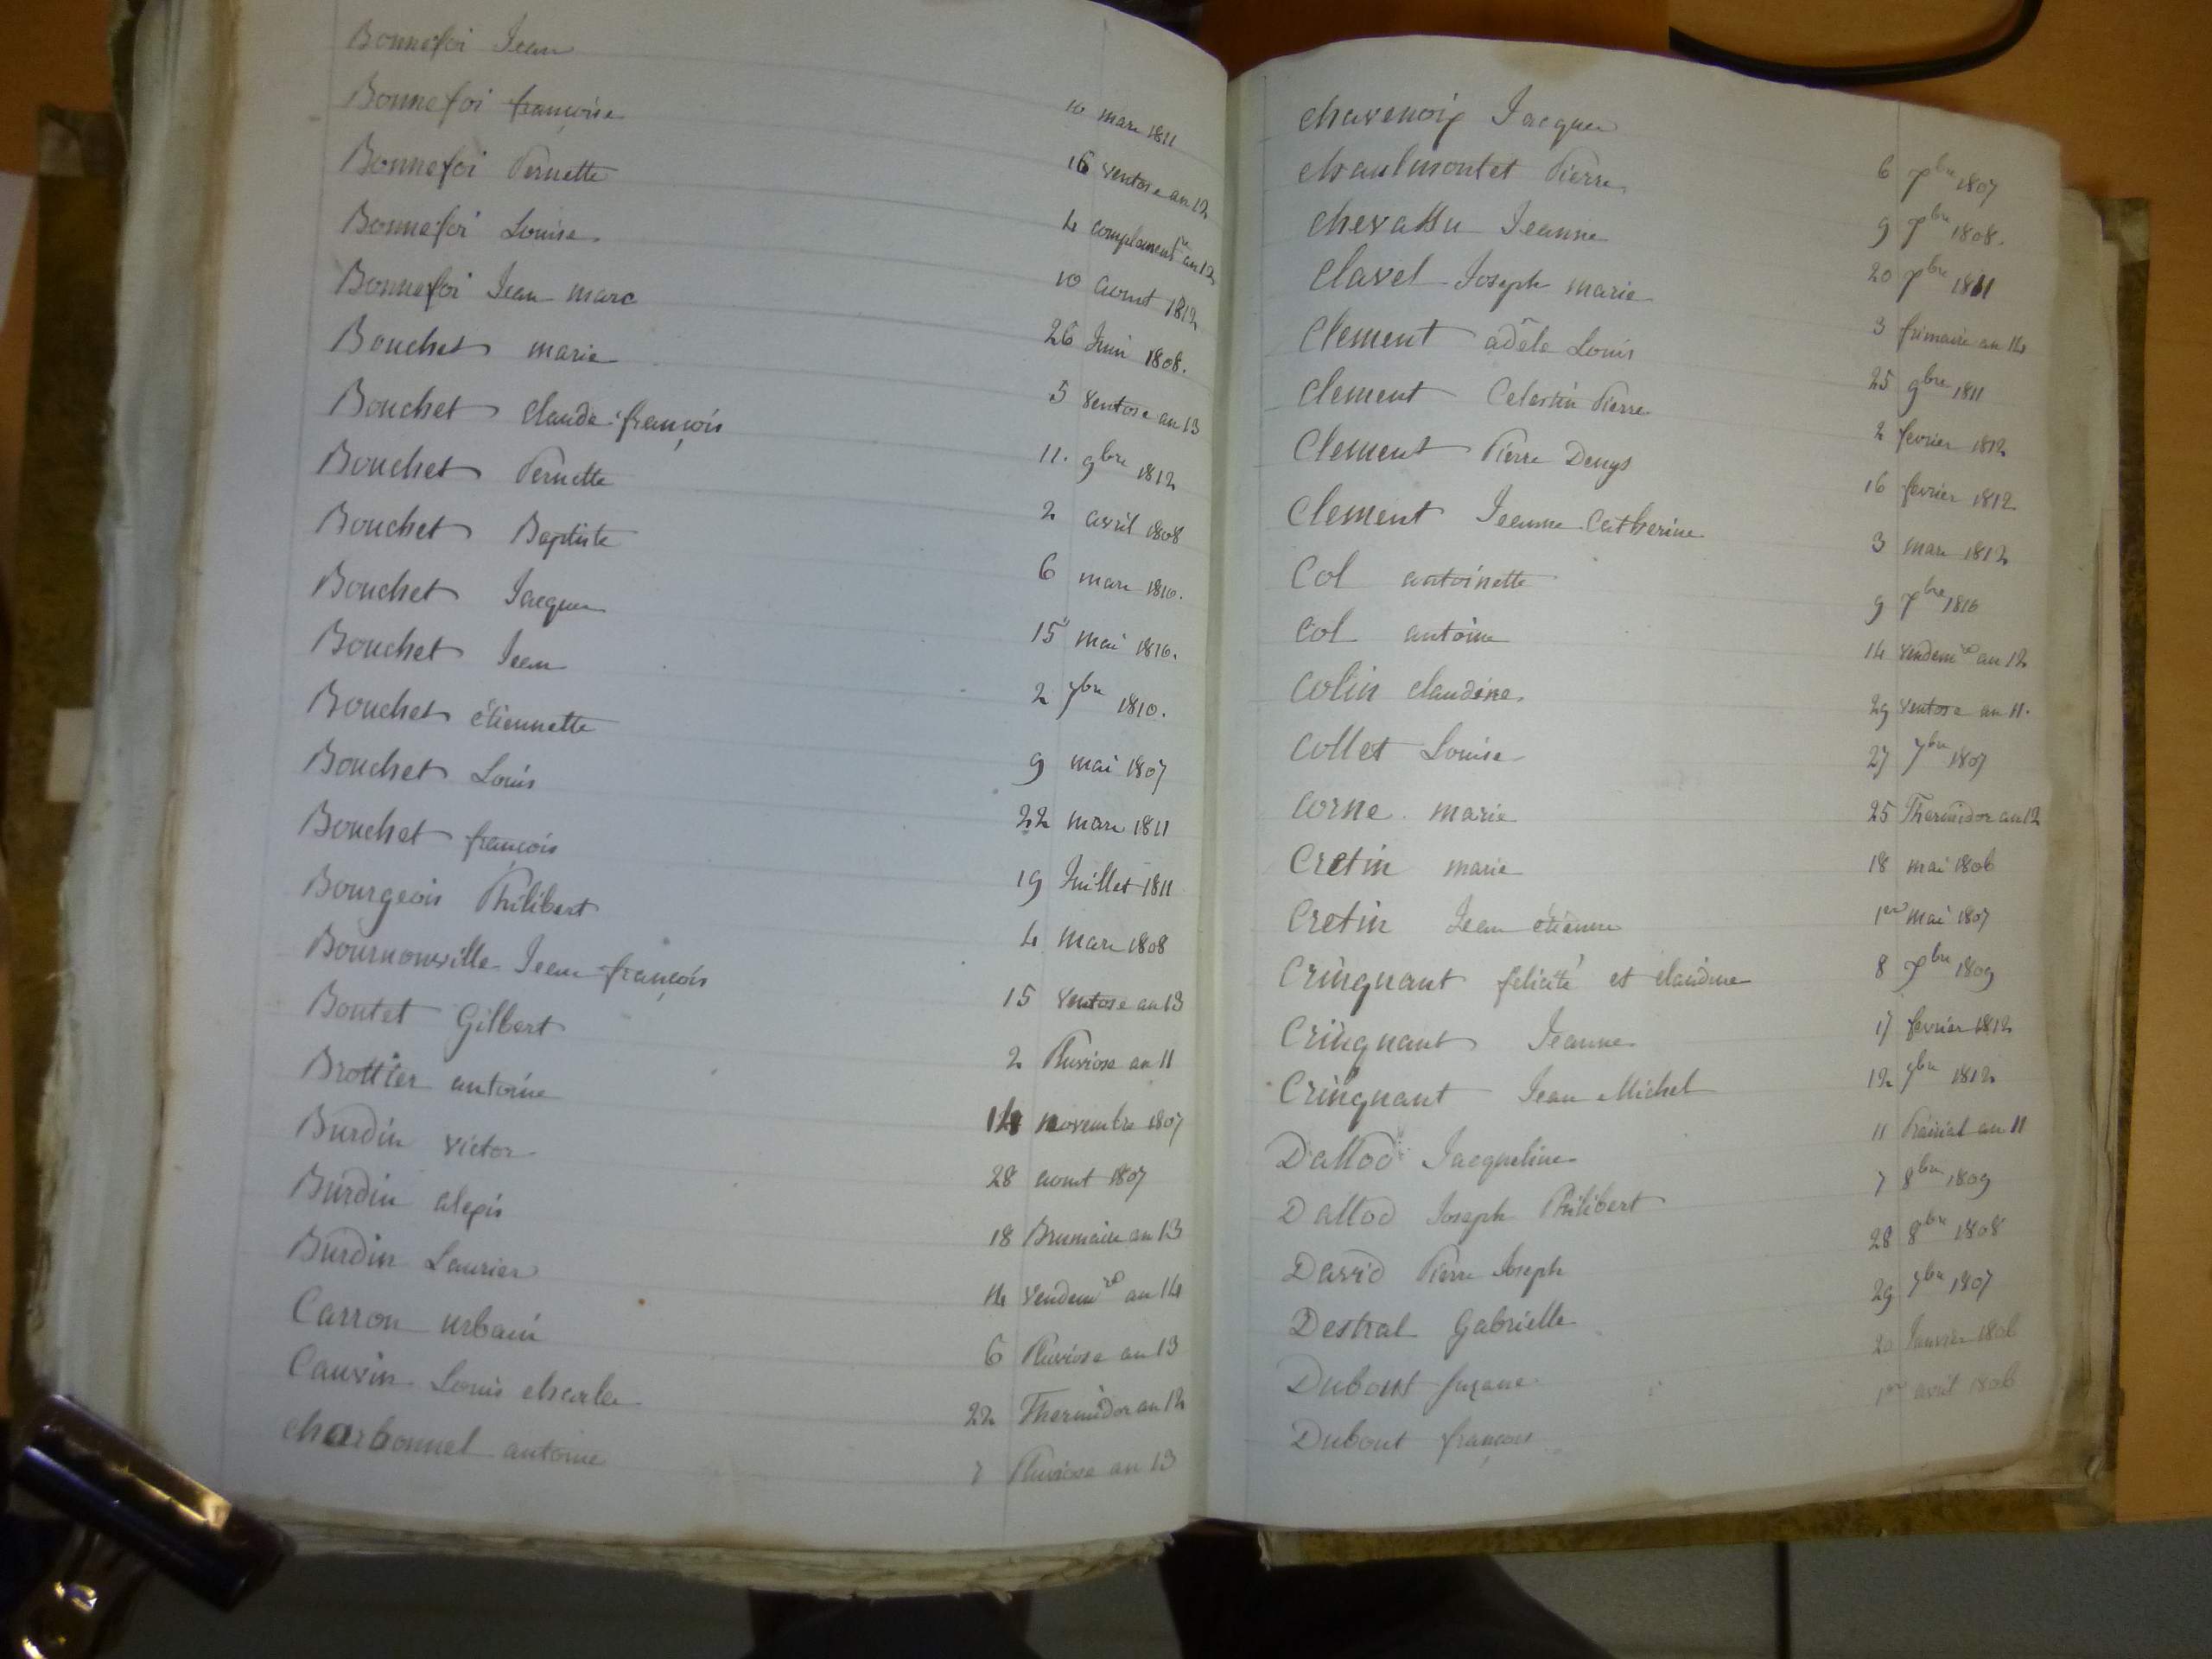 Bonnefoi Jean 10 mars 1811
Bonnefoi françoise 16 ventose an 12
Bonnefoi Pernette 4 complementre an 12
Bonnefoi Louise 10 aout 1812
Bonnefoi Jean marc 26 Juin 1808.
Bouchet marie 5 ventose an 13
Bouchet claude françois 11. 9bre 1812
Bouchet Pernette 2 avril 1808
Bouchet Baptiste 6 mars 1810.
Bouchet Jacques 15 mai 1810.
Bouchet Jean 2 7bre 1810.
Bouchet étiennette 9 mai 1807
Bouchet Louis 22 mars 1811
Bouchet françois 19 Juillet 1811
Bourgeois Philibert 4 mars 1808
Bournonville Jean françois 15 ventose an 13
Boutet Gilbert 2 Pluviose an 11
Brottier antoine 14 novembre 1807
Burdin victor 28 aout 1807
Burdin alexis 18 Brumaire an 13
Burdin Laurier 14 vendemre an 14
Carron urbain 6 Pluviose an 13
Cauvin Louis charles 22 Thermidor an 12
charbonnel antoine 7 Pluviose an 13
chavenoix Jacques 6 7bre 1807
chaulmontet Pierre 9 7bre 1808.
chevassu Jeanne 20 7bre 1811
Clavel Joseph marie 3 frimaire an 14
Clement adèle Louis 25 9bre 1811
Clement Celestin Pierre 2 fevrier 1812
Clement Pierre Denys 16 fevrier 1812
Clement Jeanne Catherine 3 mars 1812
Col antoinette 9 7bre 1810
Col antoine 14 vendemre an 12
Colin claudine 29 ventose an 11.
Collet Louise 27 7bre 1807
Corne marie 25 Thermidor an 12
Cretin marie 18 mai 1806
Cretin Jean étienne 1er mai 1807
Cringnant felicité et claudine 8 7bre 1809
Cringnant Jeanne 17 fevrier 1812
Cringnant Jean Michel 12 9bre 1812
Dallod Jacqueline 11 Prairial an 11
Dallod Joseph Philibert 7 8bre 1809
David Pierre Joseph 28 8bre 1808
Destral Gabrielle 29 7bre 1807
Dubout suzane 20 Janvier 1806
Dubout françois 1er avril 1806